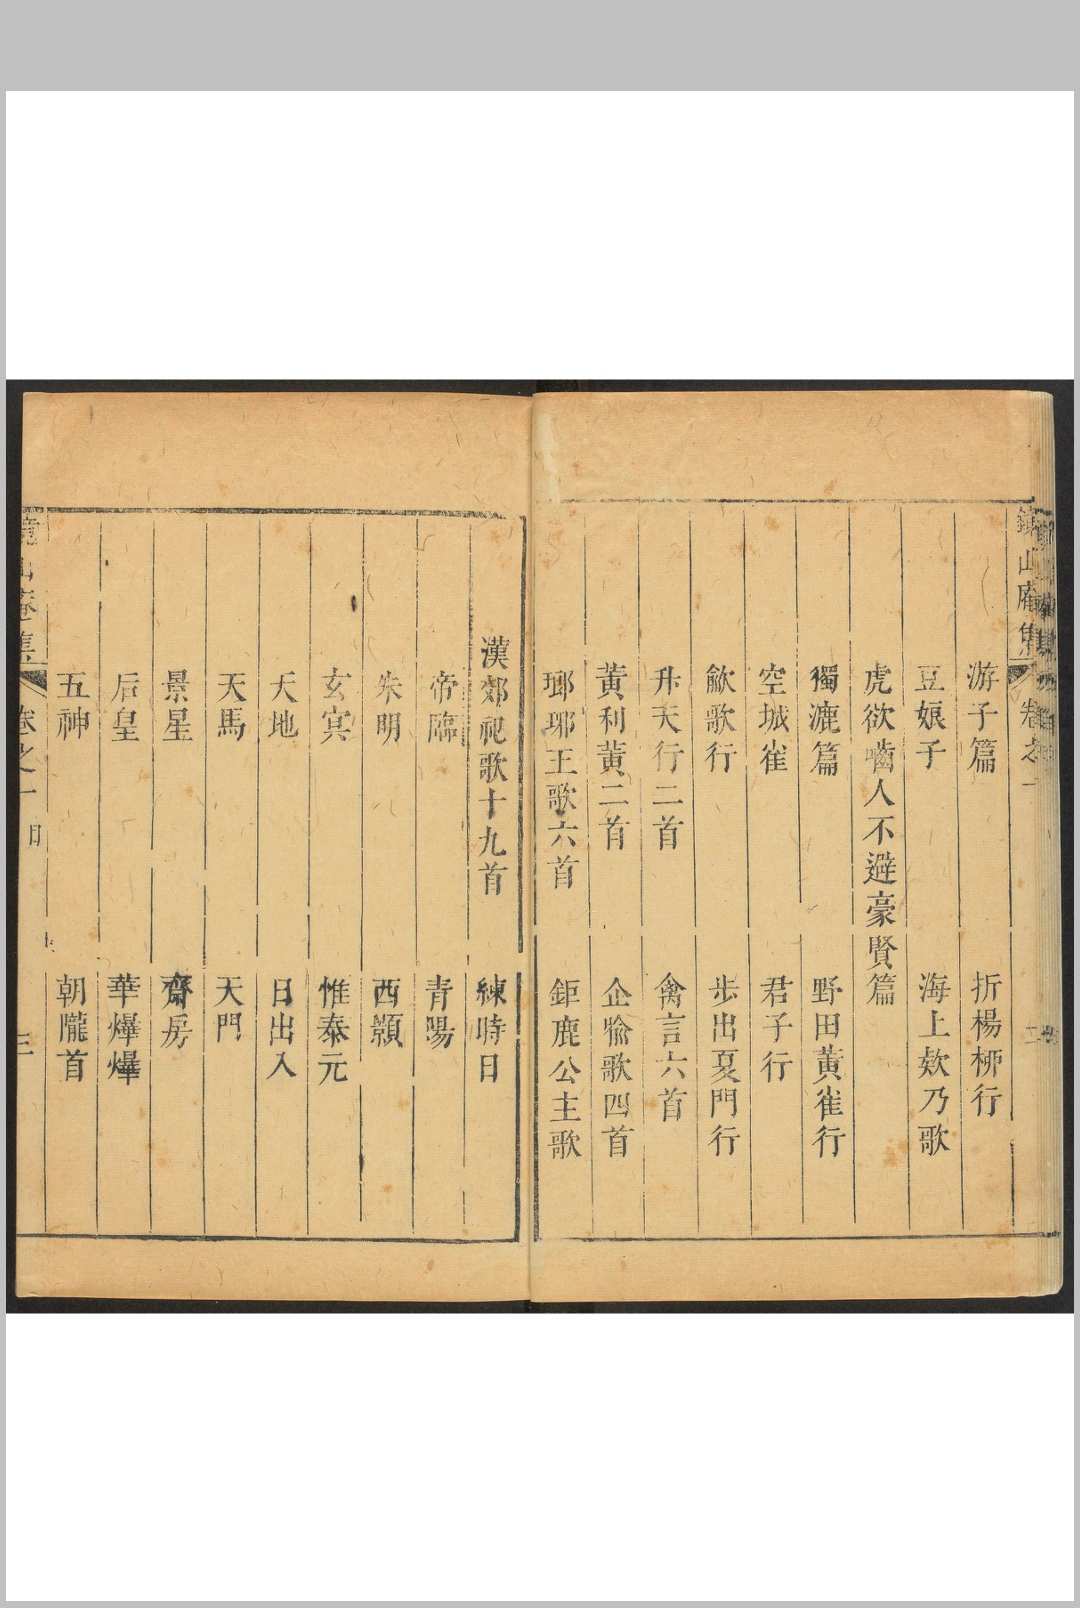 鏡山庵集 卷之一 二
游子篇 折楊栁行
豆娘子 海上欸乃歌
虎欲嚙人不避豪賢篇
獨漉篇 野田黃雀行
空城雀 君子行
歈歌行 步出夏門行
升天行二首 禽言六首
黃利黃二首 企喻歌四首
瑯琊王歌六首 鉅鹿公主歌
漢郊祀歌十九首 練時日
帝臨 青陽
朱明 西顥
玄冥 惟泰元
天地 日出入
天馬 天門
景星 齋房
后皇 華爗爗
五神 朝隴首
鏡山庵集 卷之一 目 三